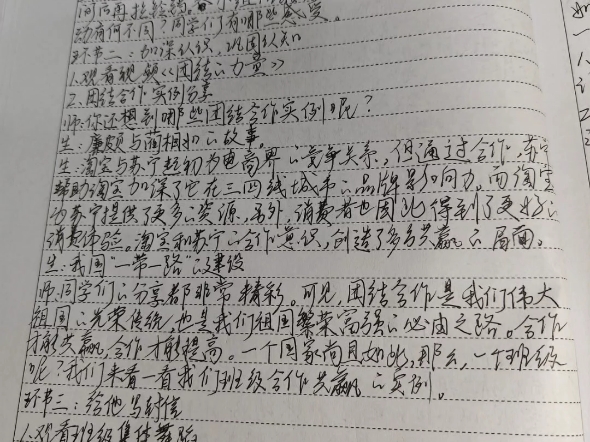 动有何不同?同学们有哪些感受。
环节二:加深认识,巩固认知
1、观看视频《团结的力量》
2、团结合作实例分享
师:你还想到哪些团结合作实例呢?
生:廉颇与蔺相如的故事。
生:淘宝与苏宁起初为电商界的竞争关系,但通过合作,苏宁
帮助淘宝加深了它在三四线城市的品牌影响力。而淘宝
为苏宁提供了更多的资源,另外,消费者也因此得到了更好的
消费体验。淘宝和苏宁的合作意识,创造了多方共赢的局面。
生:我国“一带一路”的建设
师:同学们的分享都非常精彩。可见,团结合作是我们伟大
祖国的光荣传统,也是我们祖国繁荣富强的必由之路。合作
才能共赢,合作才能提高。一个国家尚且如此,那么,一个班级
呢?我们来看一看我们班级合作共赢的实例。
环节三:给他写封信
1、观看班级集体舞蹈